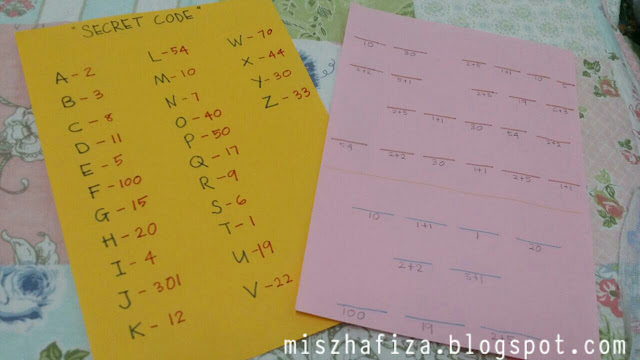 "SECRET CODE"
A - 2
B - 3
C - 8
D - 11
E - 5
F - 100
G - 15
H - 20
I - 4
J - 301
K - 12
L - 54
M - 10
N - 7
O - 40
P - 50
Q - 17
R - 9
S - 6
T - 1
U - 19
V - 22
W - 70
X - 44
Y - 30
Z - 33
10 30 2+5 1+1 10
2+2 5+1 2+5 19
2+5 1+1 54 2+2
54 2+2 20 1+1 2+5 1+1
10 1+1 1 20
2+2 5+1
100 19
miszhafiza.blogspot.com